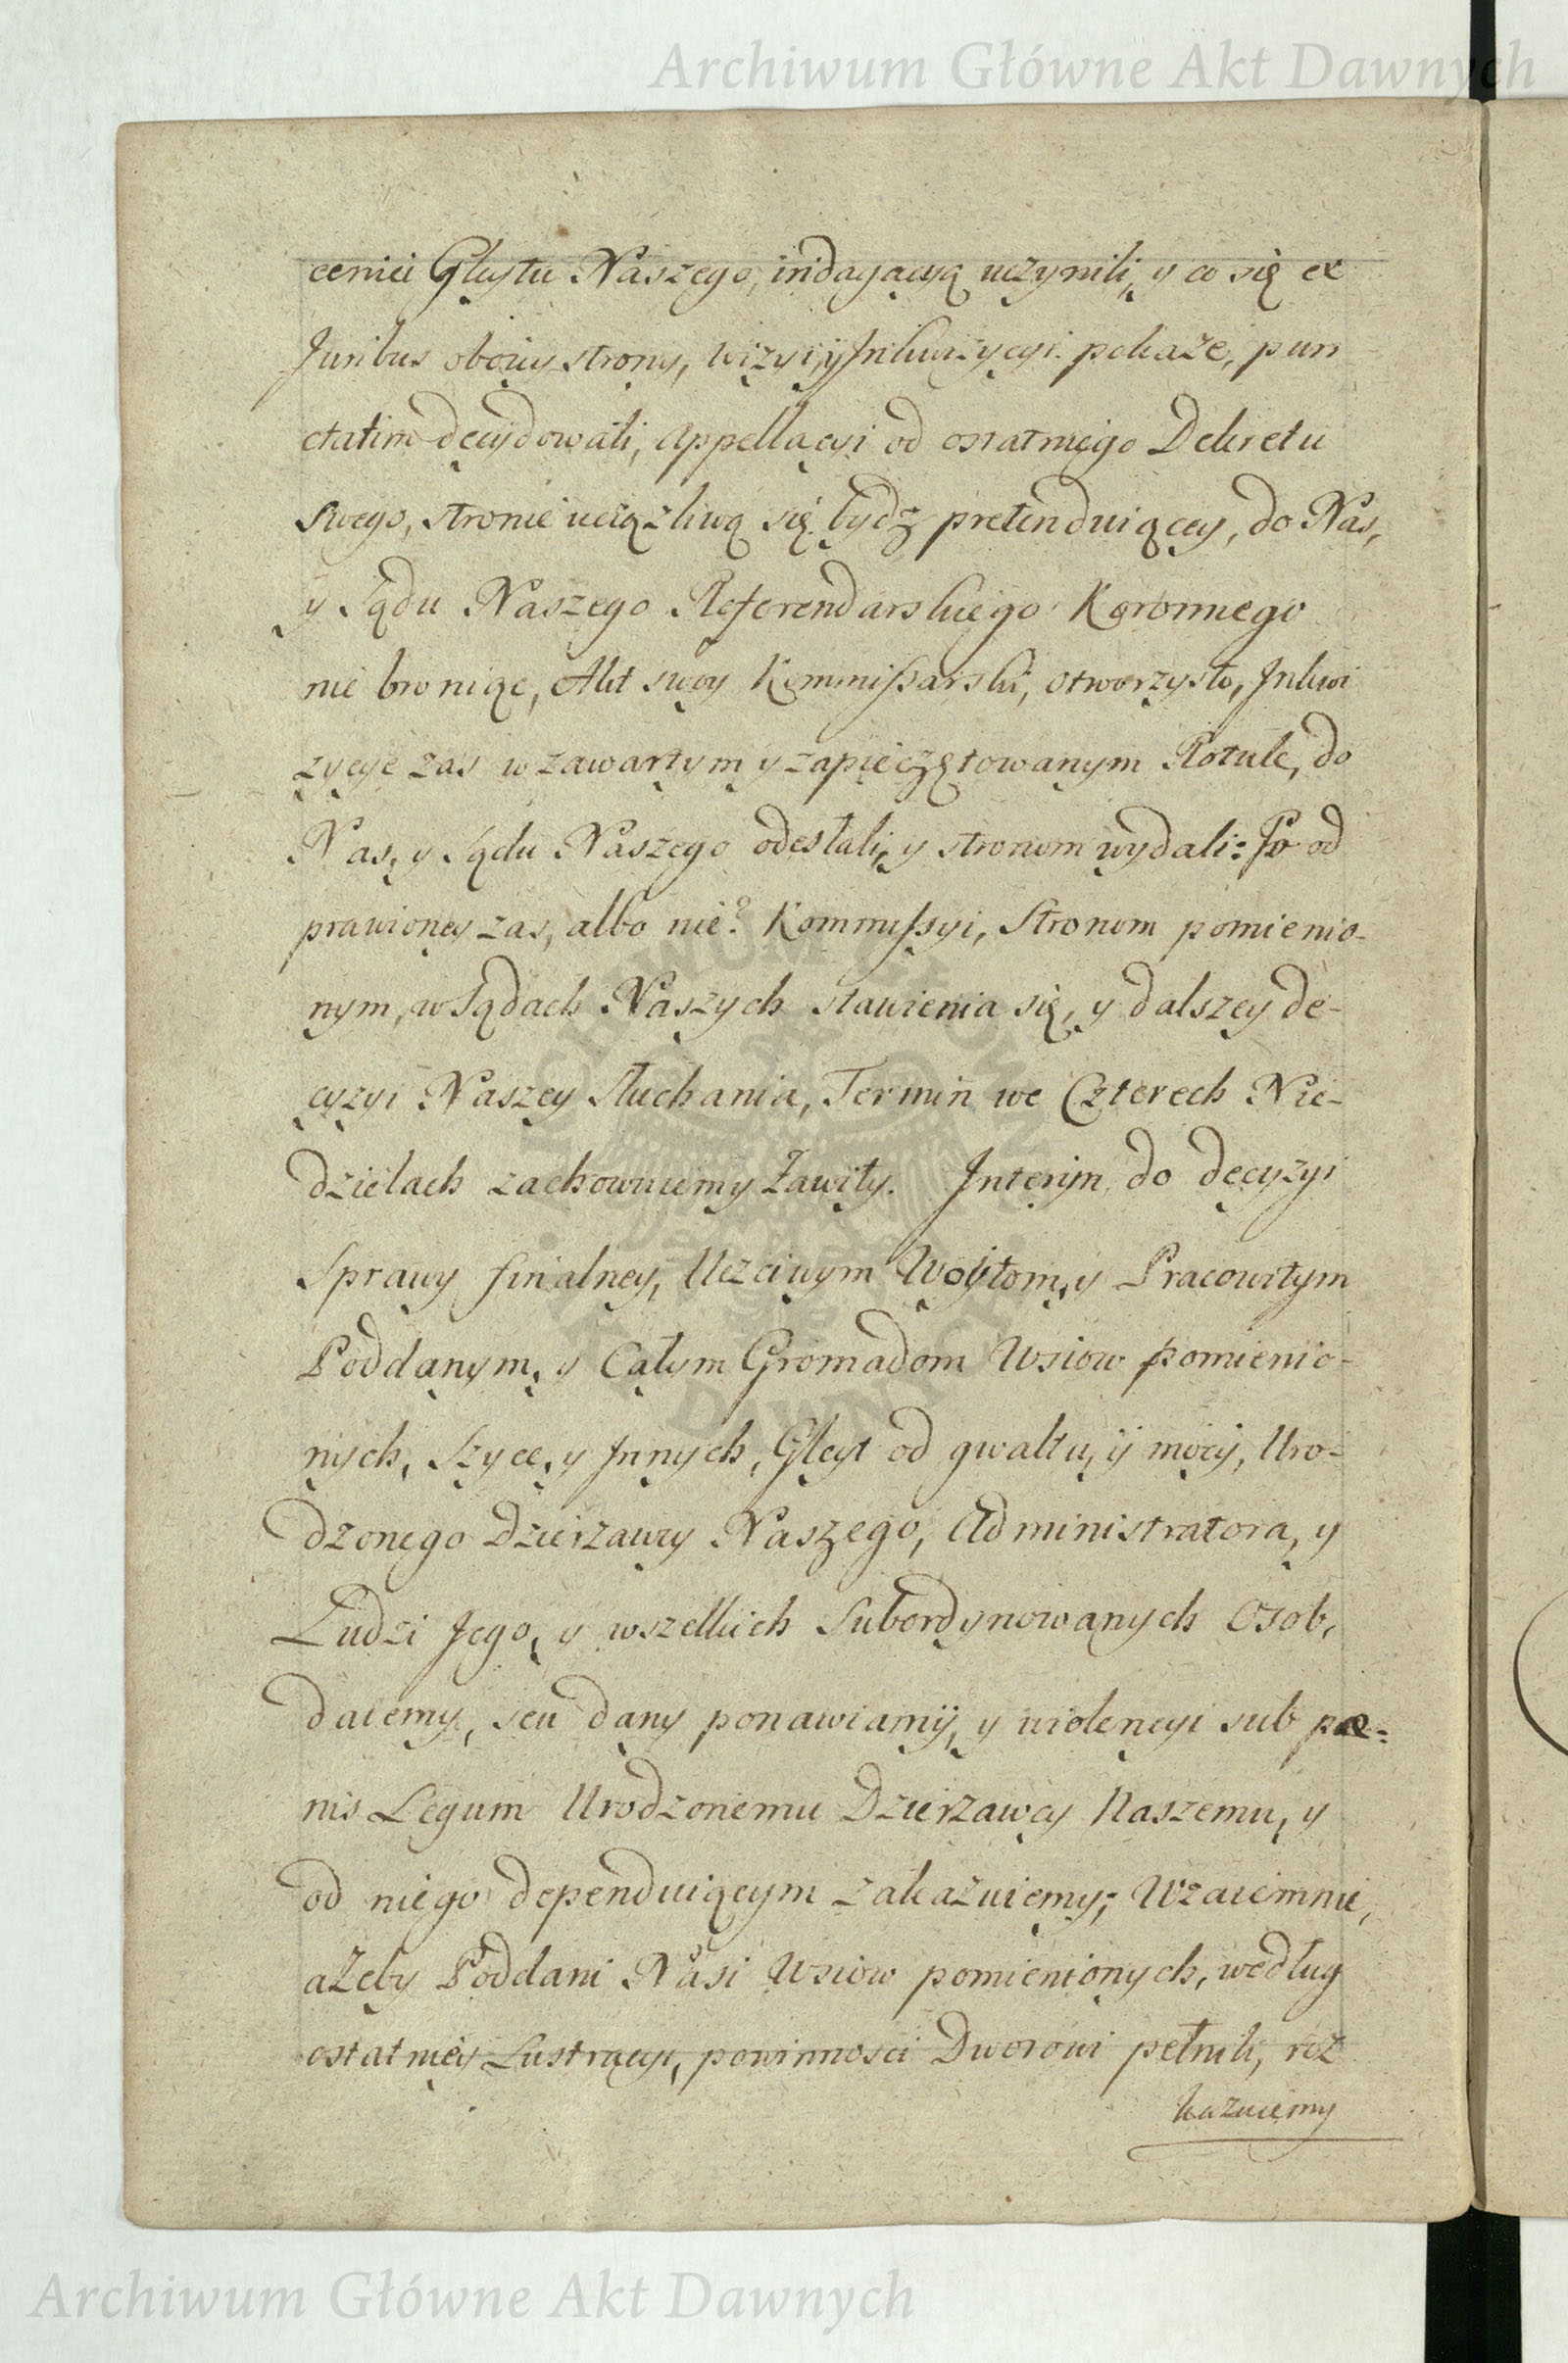 Archiwum Główne Akt Dawnych
ceniei Gleytu Naszego, indagacyą uczynili, y co się ex
Juribus oboiey strony, wizyi, y Inkwizycyi pokaże, pun
ctatim decydowali, Appellacyi od ostatniego Dekretu
swego, stronie uciążliwą się bydz pretenduiącey, do Nas,
y Sądu Naszego Referendarskiego Koronnego
nie broniąc, Akt swoy Kommißarski, otworzysto, Inkwi
zycye zas w zawartym y zapieczętowanym Rotule, do
Nas, y Sądu Naszego odesłali, y stronom wydali: Po od
prawioney zas, albo nie? Kommißyi, Stronom pomienio-
nym, w Sądach Naszych stawienia się, y dalszey de-
cyzyi Naszey słuchania, Termin we Czterech Nie-
dzielach zachowuiemy Zawity. Interim do decyzyi
Sprawy finalney, Uczciwym Woytom, y Pracowitym
Poddanym, y Całym Gromadom Wsiow pomienio-
nych, Szyce, y Innych, Gleyt od gwałtu, y mocy, Uro-
dzonego Dzierzawcy Naszego, Administratora, y
Ludzi Jego, y wszelkich Subordynowanych Osob,
daiemy, seu dany ponawiamy, y violencyi sub pæ-
nis Legum Urodzonemu Dzierzawcy Naszemu, y
od niego dependuiącym zakazuiemy; Wzaiemnie,
ażeby Poddani Nasi Wsiow pomienionych, według
ostatniey Lustracyi, powinnosci Dworowi pełnili, roz
kazuiemy
Archiwum Główne Akt Dawnych